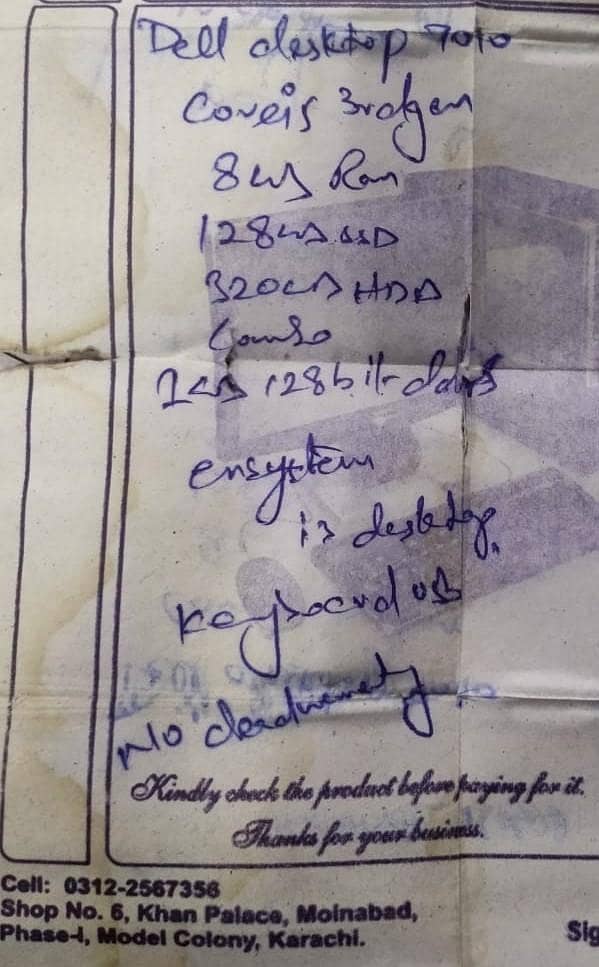 Dell desktop 7010
Coreis 3rdgen
8GB Ram
128GB SSD
320GB HDD
Combo
1GB 128bit
ensystem
is desktop
Keyboard USB
No
Kindly check the product before paying for it.
Thanks for your business.
Cell: 0312-2567356
Shop No. 6, Khan Palace, Moinabad,
Phase-I, Model Colony, Karachi.
Sig